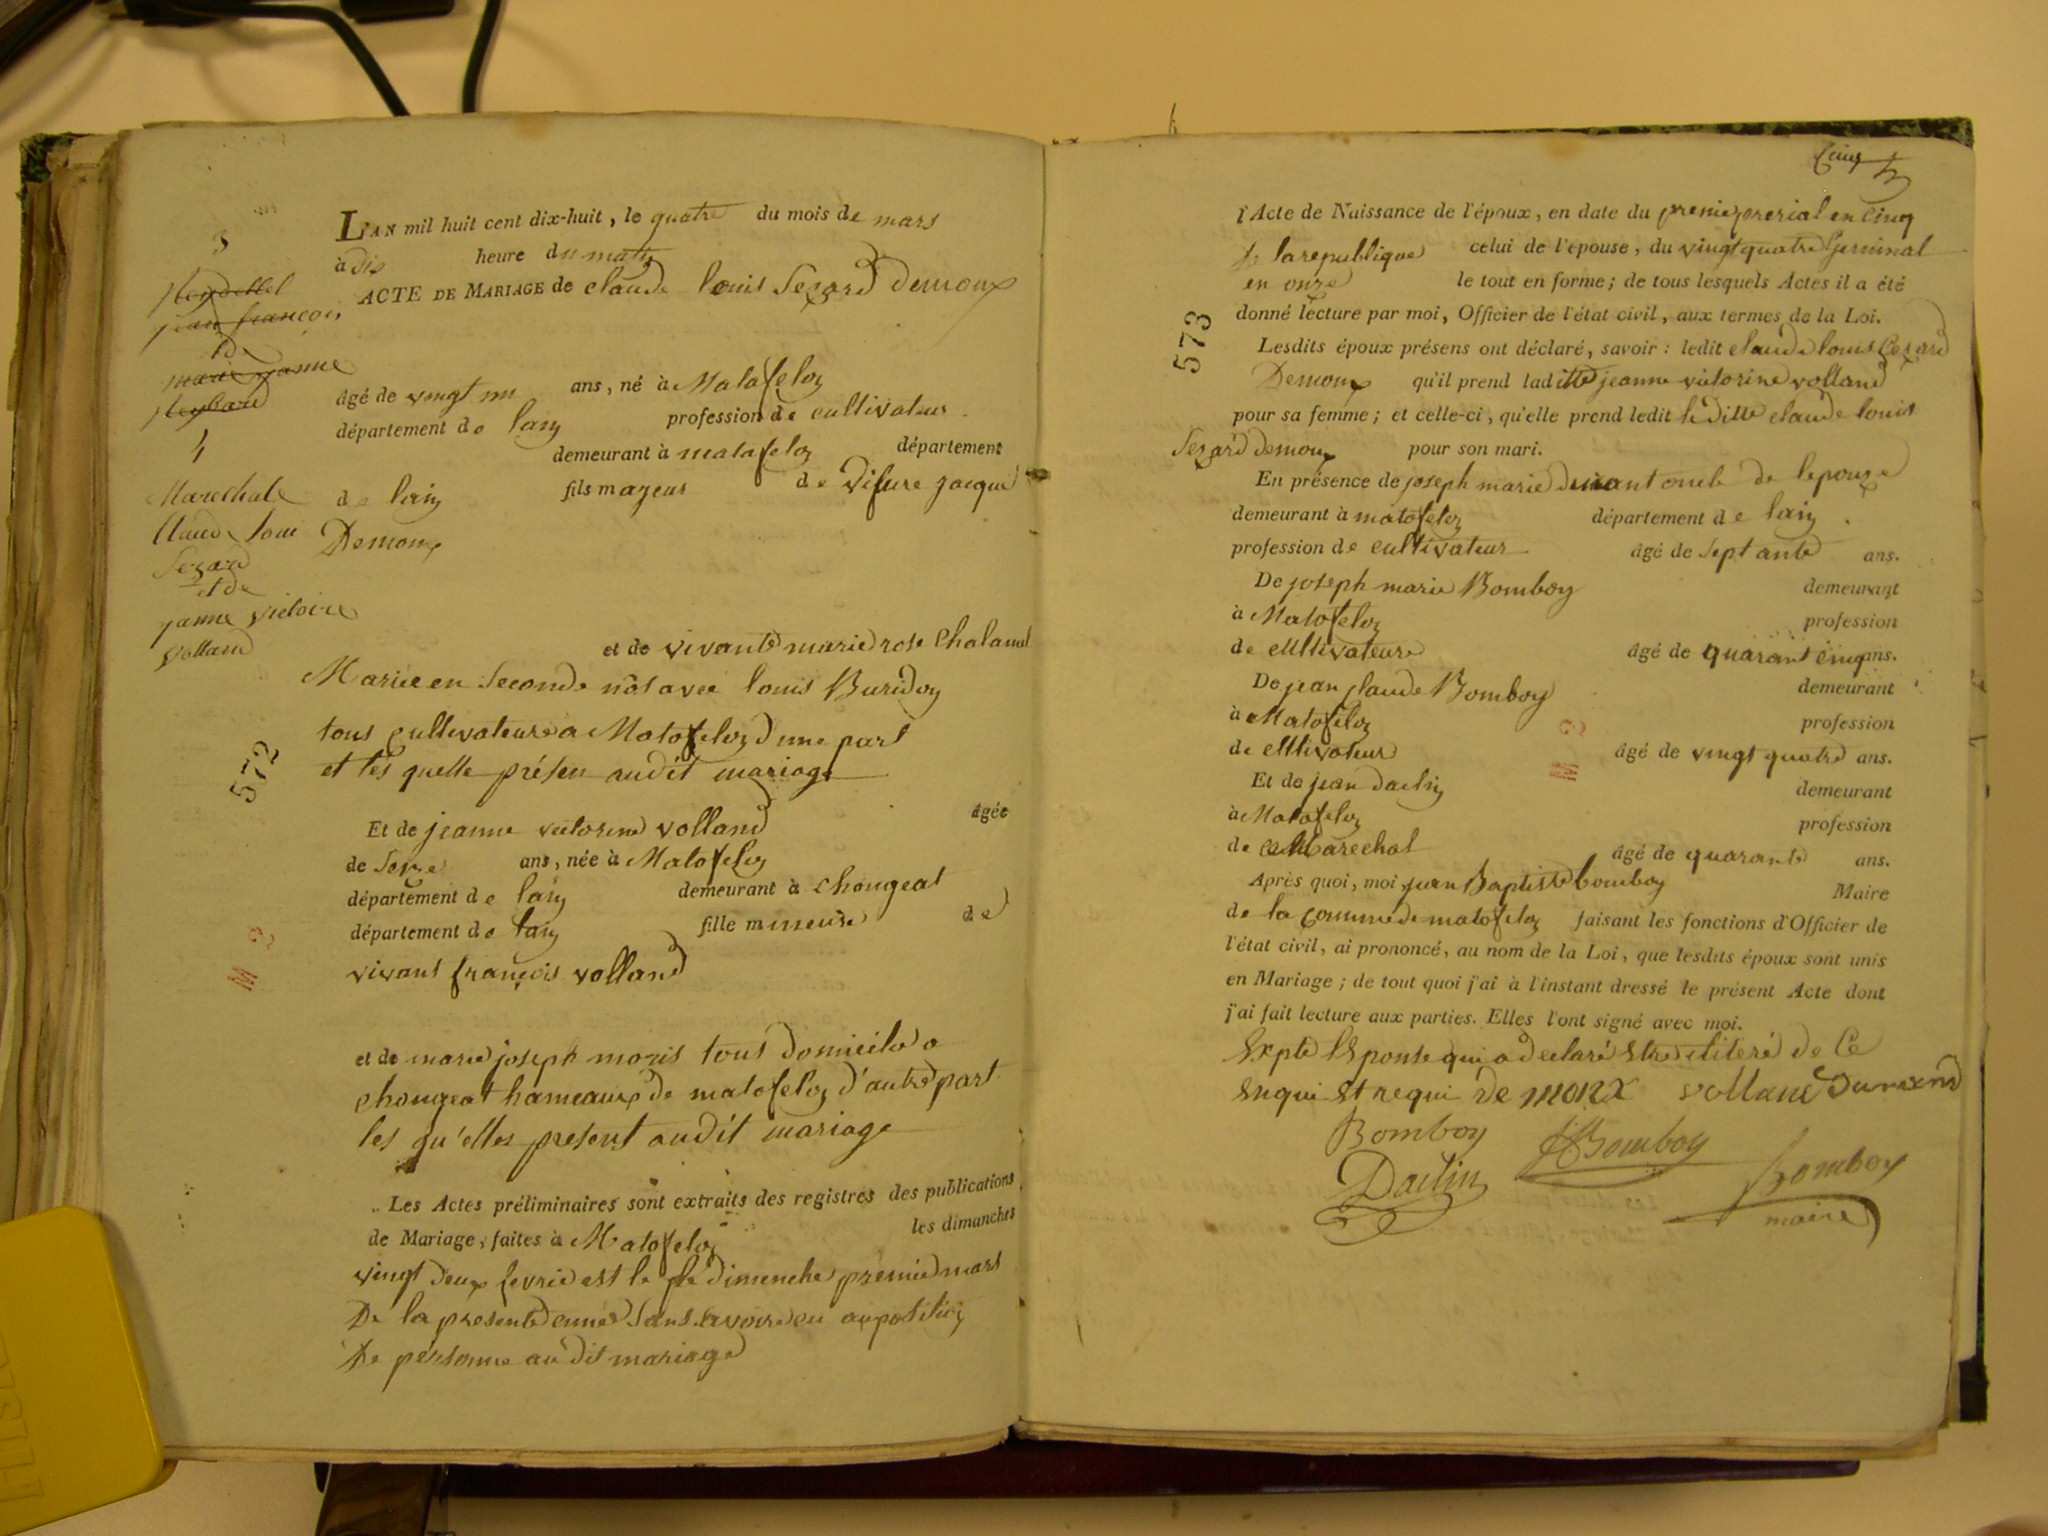 3
Jean françois
marie janne
4
Marechale
Claude Loui
Sezard
et de
janne Victoire
Volland
572
M 2
LAN mil huit cent dix-huit, le quatre du mois de mars
à Dix heure du matin
ACTE DE MARIAGE de claude Louis Sezard Demoux
âgé de vingt un ans, né à Matafeloz
département de lain profession de cultivateur.
demeurant à matafeloz département
de lain fils mageur de Difure jacque
Demoux
et de vivante marie rose Chaland
Mariée en Seconde nos avec louis Buridoy
tous cultivateurs a Matofeloz d'une part
et les quelle présen audit mariage
Et de jeanne victorine volland âgée
de Seize ans, née à Matofeloz
département de lain demeurant à Chongeat
département de lain fille mineure de
vivant françois volland
et de marie joseph moris tous Domicile a
chongeat hameaux de matofeloz d'autre part
les qu'elles présent audit mariage
Les Actes préliminaires sont extraits des registres des publications
de Mariage, faites à Matofeloz les dimanches
vingt Deux fevrie est le dimenche premie mars
De la presente année Sans avoire eu oupositioy
De personne audit mariage
Cinq
573
M 2
l'Acte de Naissance de l'époux, en date du premie prerial en Cinq
de la republique celui de l'épouse, du vingt quatre Germinal
en onze le tout en forme; de tous lesquels Actes il a été
donné lecture par moi, Officier de l'état civil, aux termes de la Loi.
Lesdits époux présens ont déclaré, savoir: ledit claude louis Cezard
Demoux qu'il prend laditte jeanne victorine volland
pour sa femme; et celle-ci, qu'elle prend ledit le ditte claude louis
Sezard Demoux pour son mari.
En présence de joseph marie Durant oncle de lepouze
demeurant à matofeloz département de lain.
profession de cultivateur âgé de Septante ans.
De joseph marie Bomboy demeurant
à Matofeloz profession
de cultivateure âgé de quarant cinq ans.
De jean Claude Bomboy demeurant
à Matofeloz profession
de cultivateur âgé de vingt quatre ans.
Et de jean Daclin demeurant
à Matofeloz profession
de Marechal âgé de quarante ans.
Après quoi, moi juan Baptiste bomboy Maire
de la Commune de matofeloz faisant les fonctions d'Officier de
l'état civil, ai prononcé, au nom de la Loi, que lesdits époux sont unis
en Mariage; de tout quoi j'ai à l'instant dressé le présent Acte dont
j'ai fait lecture aux parties. Elles l'ont signé avec moi.
Expté l'Eponse qui a declaré Etre eliteré de Ce
Enqui Et requi De monx vollant Durand
Bomboy JCBomboy
Daclin Bomboy
maire